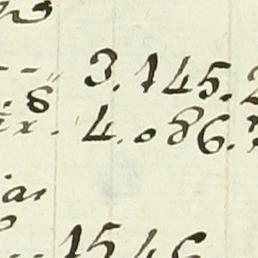 -- " 3.145.2
.8
ix. 4.086.7
ias
-- 1546